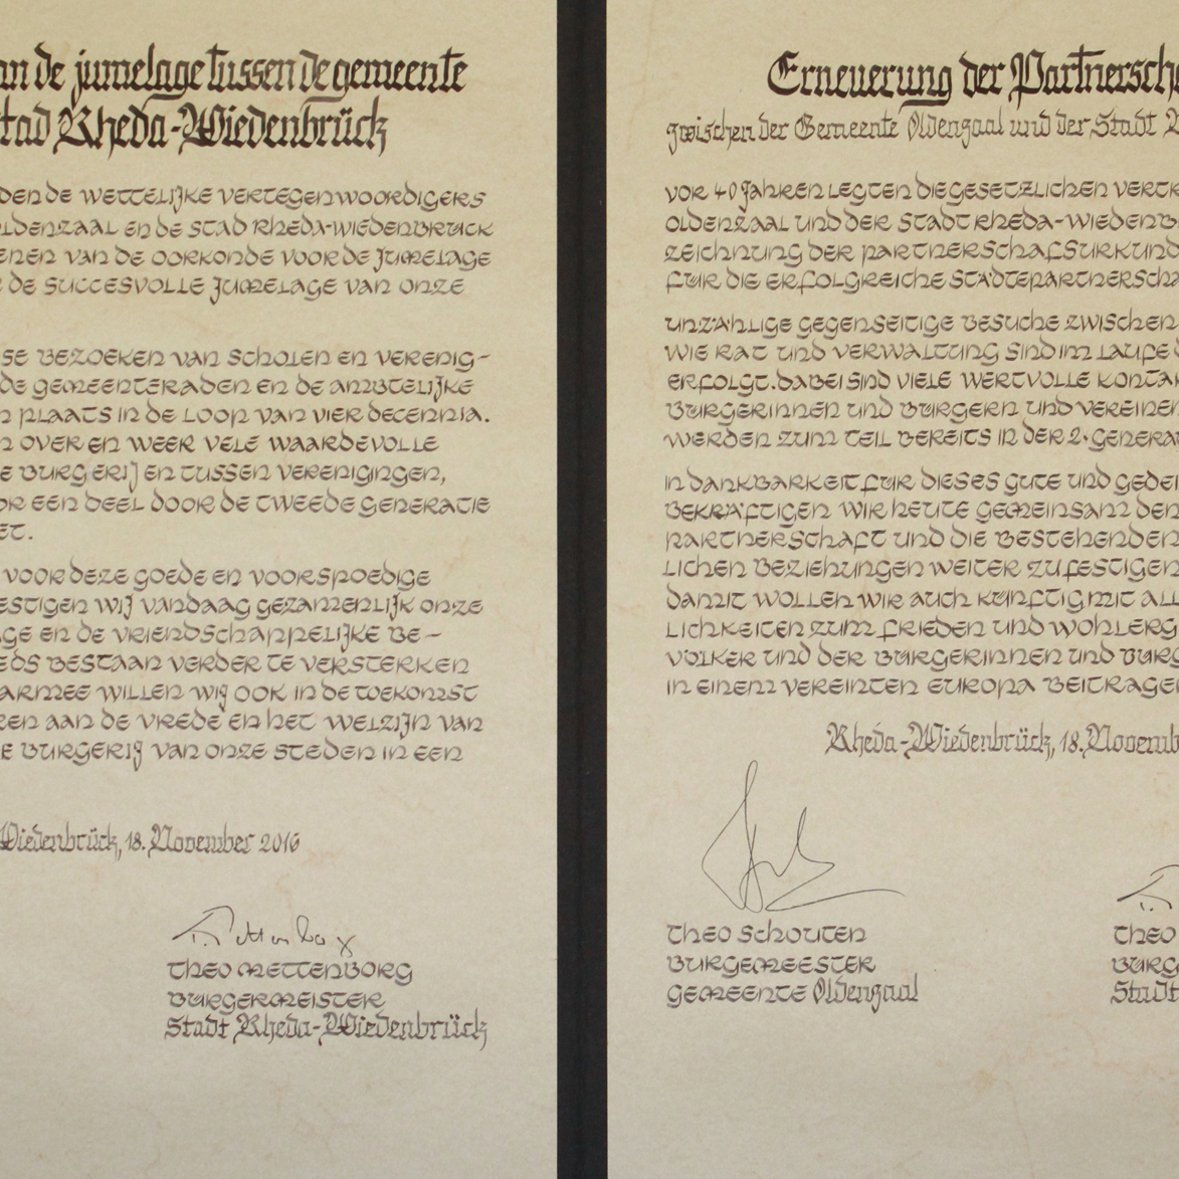 an de jumelage tussen de gemeente
tad Rheda-Wiedenbrück
DEN DE WETTELIJKE VERTEGENWOORDIGERS
LDENZAAL EN DE STAD RHEDA-WIEDENBRÜCK
ENEN VAN DE OORKONDE VOOR DE JUMELAGE
R DE SUCCESVOLLE JUMELAGE VAN ONZE
SE BEZOEKEN VAN SCHOLEN EN VERENIG-
DE GEMEENTERADEN EN DE AMBTELIJKE
N PLAATS IN DE LOOP VAN VIER DECENNIA.
N OVER EN WEER VELE WAARDEVOLLE
E BURGERIJ EN TUSSEN VERENIGINGEN,
OR EEN DEEL DOOR DE TWEEDE GENERATIE
ET.
VOOR DEZE GOEDE EN VOORSPOEDIGE
ESTIGEN WIJ VANDAAG GEZAMENLIJK ONZE
GE EN DE VRIENDSCHAPPELIJKE BE-
EDS BESTAAN VERDER TE VERSTERKEN
ARMEE WILLEN WIJ OOK IN DE TOEKOMST
REN AAN DE VREDE EN HET WELZIJN VAN
E BURGERIJ VAN ONZE STEDEN IN EEN
Wiedenbrück, 18. November 2016
T. Mettenborg
THEO METTENBORG
BÜRGERMEISTER
Stadt Rheda-Wiedenbrück
Erneuerung der Partnersch
zwischen der Gemeente Oldenzaal und der Stadt
VOR 40 JAHREN LEGTEN DIE GESETZLICHEN VERTR
OLDENZAAL UND DER STADT RHEDA-WIEDENB
ZEICHNUNG DER PARTNERSCHAFSURKUND
FÜR DIE ERFOLGREICHE STÄDTEPARTNERSCHA
UNZÄHLIGE GEGENSEITIGE BESUCHE ZWISCHEN
WIE RAT UND VERWALTUNG SIND IM LAUFE
ERFOLGT. DABEI SIND VIELE WERTVOLLE KONTAK
BÜRGERINNEN UND BÜRGERN UND VEREINEN
WERDEN ZUM TEIL BEREITS IN DER 2. GENERAT
IN DANKBARKEIT FÜR DIESES GUTE UND GEDEI
BEKRÄFTIGEN WIR HEUTE GEMEINSAM DEN
PARTNERSCHAFT UND DIE BESTEHENDEN
LICHEN BEZIEHUNGEN WEITER ZU FESTIGEN
DAMIT WOLLEN WIR AUCH KÜNFTIG MIT ALL
LICHKEITEN ZUM FRIEDEN UND WOHLERG
VÖLKER UND DER BÜRGERINNEN UND BÜRG
IN EINEM VEREINTEN EUROPA BEITRAGEN
Rheda-Wiedenbrück, 18. Novemb
THEO SCHOUTEN
BURGEMEESTER
GEMEENTE Oldenzaal
T.
THEO
BÜRGE
Stadt